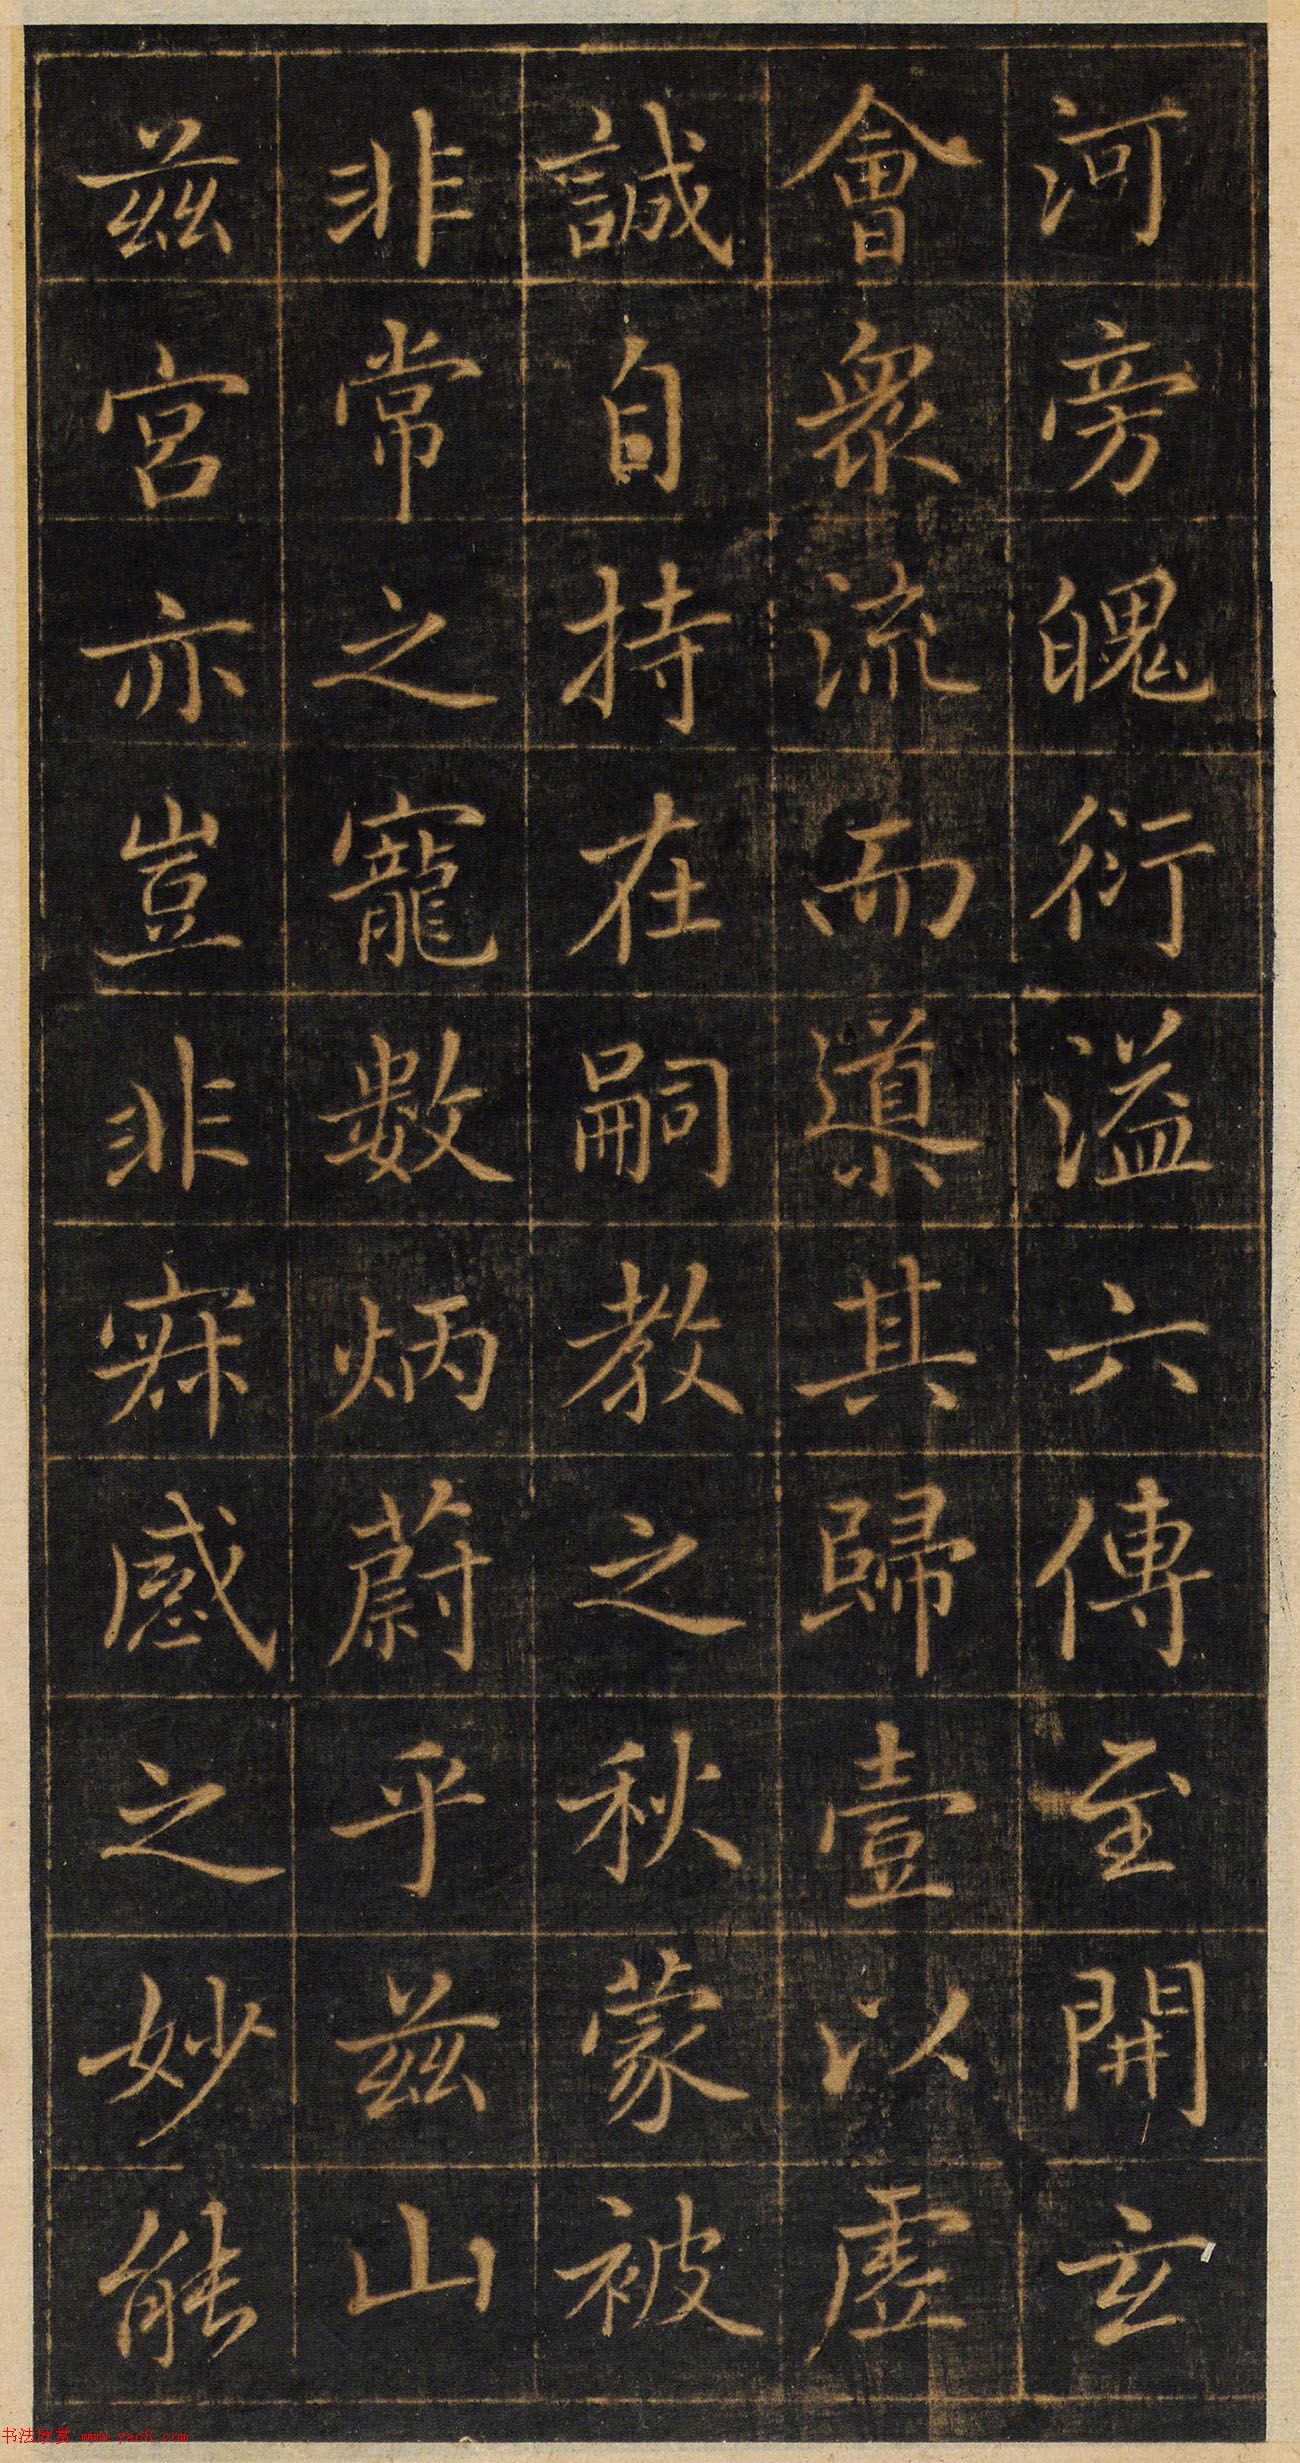 河旁魄衍溢六傳至開玄
會眾流而導其歸壹以虛
誠自持在嗣教之秋蒙被
非常之寵數炳蔚乎茲山
茲宮亦豈非寂感之妙能
书法欣赏 www.yac8.com